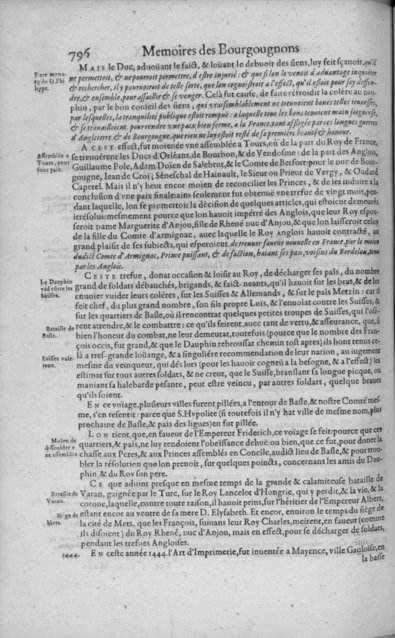 796 Memoires des Bourgougnons
MAIS le Duc, aduoüant le faict, & loüant le debuoir des siens, luy feit sçauoir, qu'il
ne permettoit, & ne pourroit permettre, d'estre iniurié : & que si lon le venoit d'auantage inquieter
& rechercher, il y pouruoiroit de telle sorte, que lon cognoistroit a l'effect, qu'il estoit pour soy deffendre,
& ensemble, pour assaillir & se vanger. Cela fut cause, de faire refroidir la colére au nouphin,
par le bon conseil des siens, qui vraisemblablement ne trouuoient bonnes telles
par lesquelles, la tranquilité publique estoit rompuë: a laquelle tous les bons tenoient main
& se trauailloient, pour rendre vne paix bien ferme, a la France, tant affligée par ces longues guerres
d'Angleterre, & de Bourgougne, que rien ne luy estoit resté de sa première beauté & honeur.
A CEST effect, fut moienné vne assemblée a Tours, où de la part du Roy de France,
se treuuérent les Ducs d'Orléans, de Bourbon, & de Vendosme : de la part des Anglois,
Guillaume Pole, Adam Dolen de Salebrot, & le Comte de Berfort : pour le duc de Bourgougne,
Iean de Croï, Séneschal de Hainault, le Sieur ou Prieur de Vergy, & Oudard
Caperel. Mais il n'y heut encor moien de reconcilier les Princes, & de les induire a la
conclusion d'vne paix finale: ains seulement fut obtenuë vne tresue de vingt mois, pendant
laquelle, lon se promettoit la décision de quelques articles, qui estoient demeurés
irrésolus: mesmement pource que lon hauoit impétré des Anglois, que leur Roy espouseroit
dame Marguerite d'Anjou, fille de Rhené duc d'Anjou, & que lon laisseroit enlier
de la fille du Comte d'Armignac, auec laquelle le Roy Anglois hauoit contracté, au
grand plaisir de ses subiects, qui esperoient, de trouuer faueur nouuelle en France, par le moien
dudict Comte d'Armignac, Prince puissant, & de faction, haiant ses païs, voisins du Bordelois, tenu
par les Anglois.
CESTE tresue, donat occasion & loisir au Roy, de décharger ses païs, du nombre
grand de soldats débauchés, brigands, & faict-neants, qu'il hauoit sur les bras, & de les
enuoier vuider leurs coléres, sur les Suisses & Allemands, & sur le païs Metzin : car il
feit chef, du plus grand nombre, son fils propre Loïs, & l'enuoiat contre les Suisses, &
sur les quartiers de Basle, où il rencontrat quelques petites troupes de Suisses, qui l'osérent
attendre, & le combattre : ce qu'ils feirent, auec tant de vertu, & asseurance, que, si
bien l'honeur du combat, ne leur demeurat, toutefois (pource que le nombre des François
occis, fut grand, & que le Dauphin rebroussat chemin tost après) ils hont tenu cela
a tres-grande loüange, & a singuliére recommendation de leur nation, au iugement
mesme du veinqueur, qui dés lors (pour les hauoir cogneü a la besogne, & a l'effect) les
estimat sur tous autres soldats, & ne creut, que le Suisse, branslant sa longue picque, ou
maniant sa halebarde pesante, peut estre veincu, par autres soldats, quelque braues
qu'ils soient.
EN ce voiage, plusieurs villes furent pillées, a l'entour de Basle, & nostre Comté mesme,
s'en resentit : parce que S. Hypolite (si toutefois il n'y hat ville de mesme nom, plus
prochaine de Basle, & païs des ligues) en fut pillée.
LON tient, que, en faueur de l'Empereur Friderich, ce voiage se feit : pource que ces
quartiers, & païs, ne luy rendoient l'obeïssance dehuë: ou bien, que ce fut, pour donner la
chasse aux Pères, & aux Princes assemblés en Concile, audict lieu de Basle, & pour troubler
la résolution que lon prenoit, sur quelques poincts, concernans les amis du Dauphin,
& du Roy son pere.
CE que aduint presque en mesme temps de la grande & calamiteuse bataille de
Varan, gaignée par le Turc, sur le Roy Lancelot d'Hongrie, qui y perdit, & la vie, & la
corone, laquelle, contre toute raison, il hauoit prins, sur l'héritier de l'Empereur Albert,
estant encor au ventre de sa mere D. Elysabeth. Et encor, enuiron le temps du siége de
la cité de Mets, que les François, suiuans leur Roy Charles, meirent, en faueur (comme
ils disoient) du Roy Rhené, duc d'Anjou, mais en effect, pour se décharger de soldats,
pendant les tresues Angloises.
EN ceste année 1444. l'Art d'Imprimerie, fut inuentée a Mayence, ville Gauloise, en
la basse
Assemblée a
Tours, pour
faire paix.
Le Dauphin
vad côtre les
Suisses.
Bataille de
Basle.
Suisses valeureux.
Moien de
dissouldre vne
assemblée
Bataille de
Varan.
Siége de
Mets.
1444.